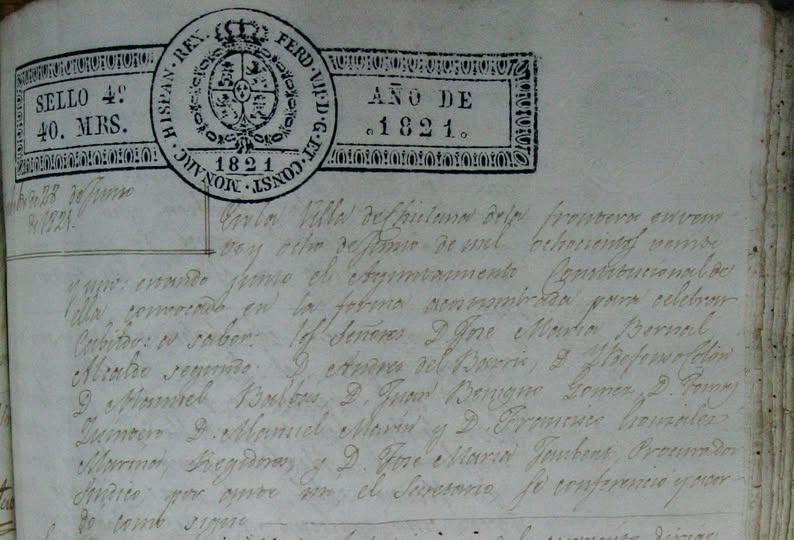 SELLO 4º
40. MRS.
HISPAN. REX. FERD. VII. D. G. ET CONST. MONARC.
1821
AÑO DE
1821.
de 28 de Junio
de 1821.
En la Villa de Chiclana de la frontera en vein
te y ocho de Junio de mil ochocientos veinte
y uno: estando junto el Ayuntamiento Constitucional de
ella convocado en la forma acostumbrada para celebrar
Cabildo: a saber: los Señores D. Jose Maria Bernal
Alcalde segundo: D. Andres del Barrio, D. Yldefonso
D. Manuel Balbas, D. Juan Benigno Gomez, D. Tomas
Quintero D. Manuel Marin y D. Francisco Gonzalez
Marina, Regidores, y D. Jose Maria Procurador
Sindico por ante mi, el Secretario, se conferencio y acor
do como sigue